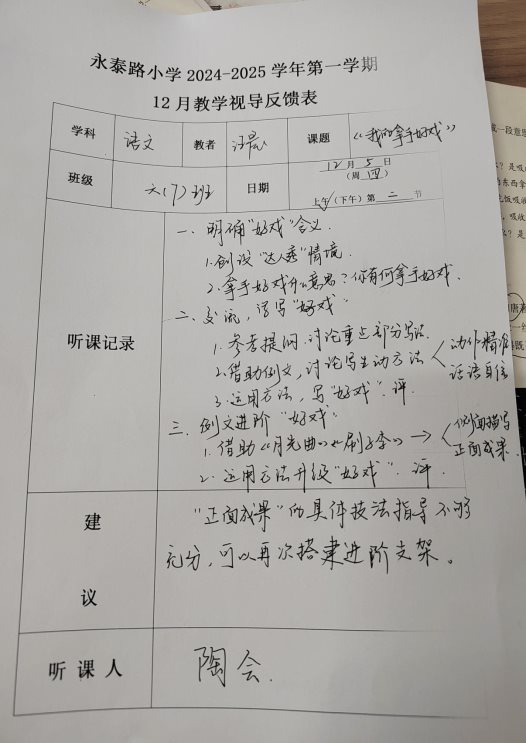 永泰路小学 2024-2025 学年第一学期
12 月教学视导反馈表
学科 语文 教者 汪晨 课题 《我的拿手好戏》
班级 六(7)班 日期 12 月 5 日
(周 四)
上午√(下午)第 二 节
听课记录
一、明确"好戏"含义.
1.创设"达人秀"情境.
2.拿手好戏什么意思?你有何拿手好戏.
二、交流,学写"好戏"
1.参考提问.讨论重点部分写法.
2.借助例文,讨论写生动方法 动作精准 话语自信
3.运用方法,写"好戏".评.
三.例文进阶"好戏".
1.借助《月光曲》《刷子李》→ 侧面描写 正面成果.
2.运用方法升级"好戏".评.
建
议
"正面成果"的具体技法指导不够
充分,可以再次搭建进阶支架。
听 课 人 陶会.